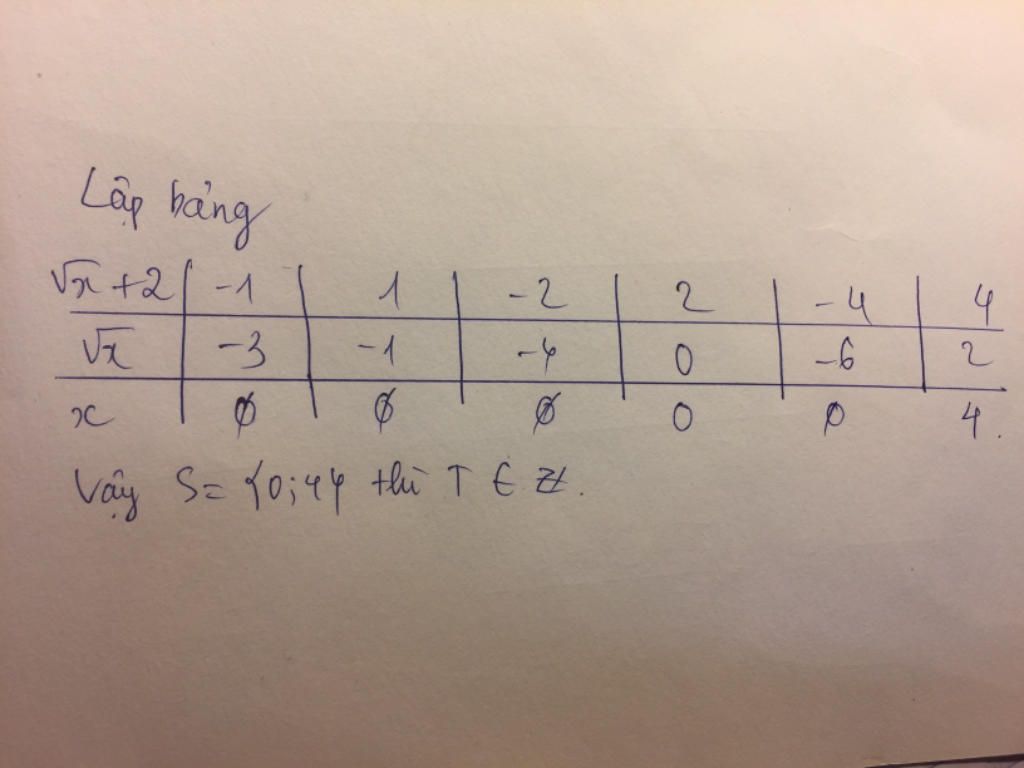 Lập bảng
√x + 2 | -1 | 1 | -2 | 2 | -4 | 4
√x | -3 | -1 | -4 | 0 | -6 | 2
x | ∅ | ∅ | ∅ | 0 | ∅ | 4.
Vậy S = {0;4} thì T ∈ Z.